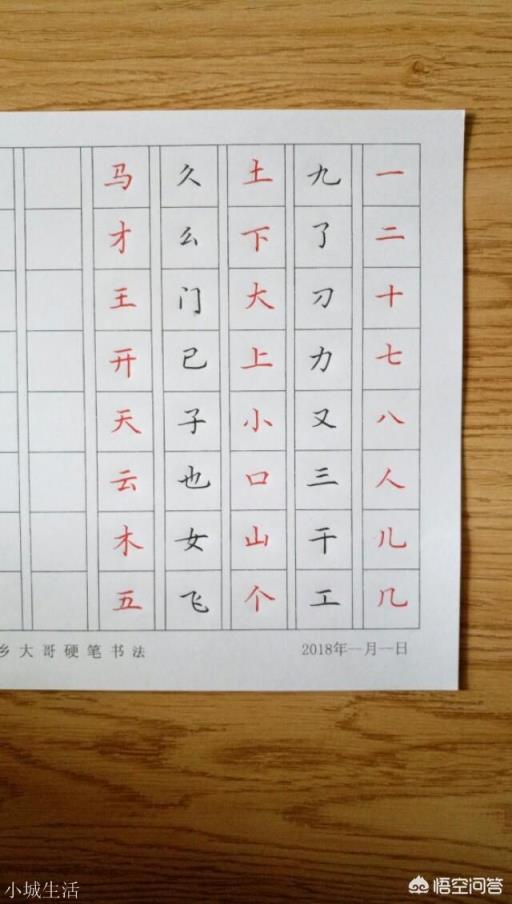 一二十七八人儿几
九了刁力又三干工
土下大上小口山个
久么门已子也女飞
马才王开天云木五
乡大哥硬笔书法
2018年--月--日
小城生活
悟空问答